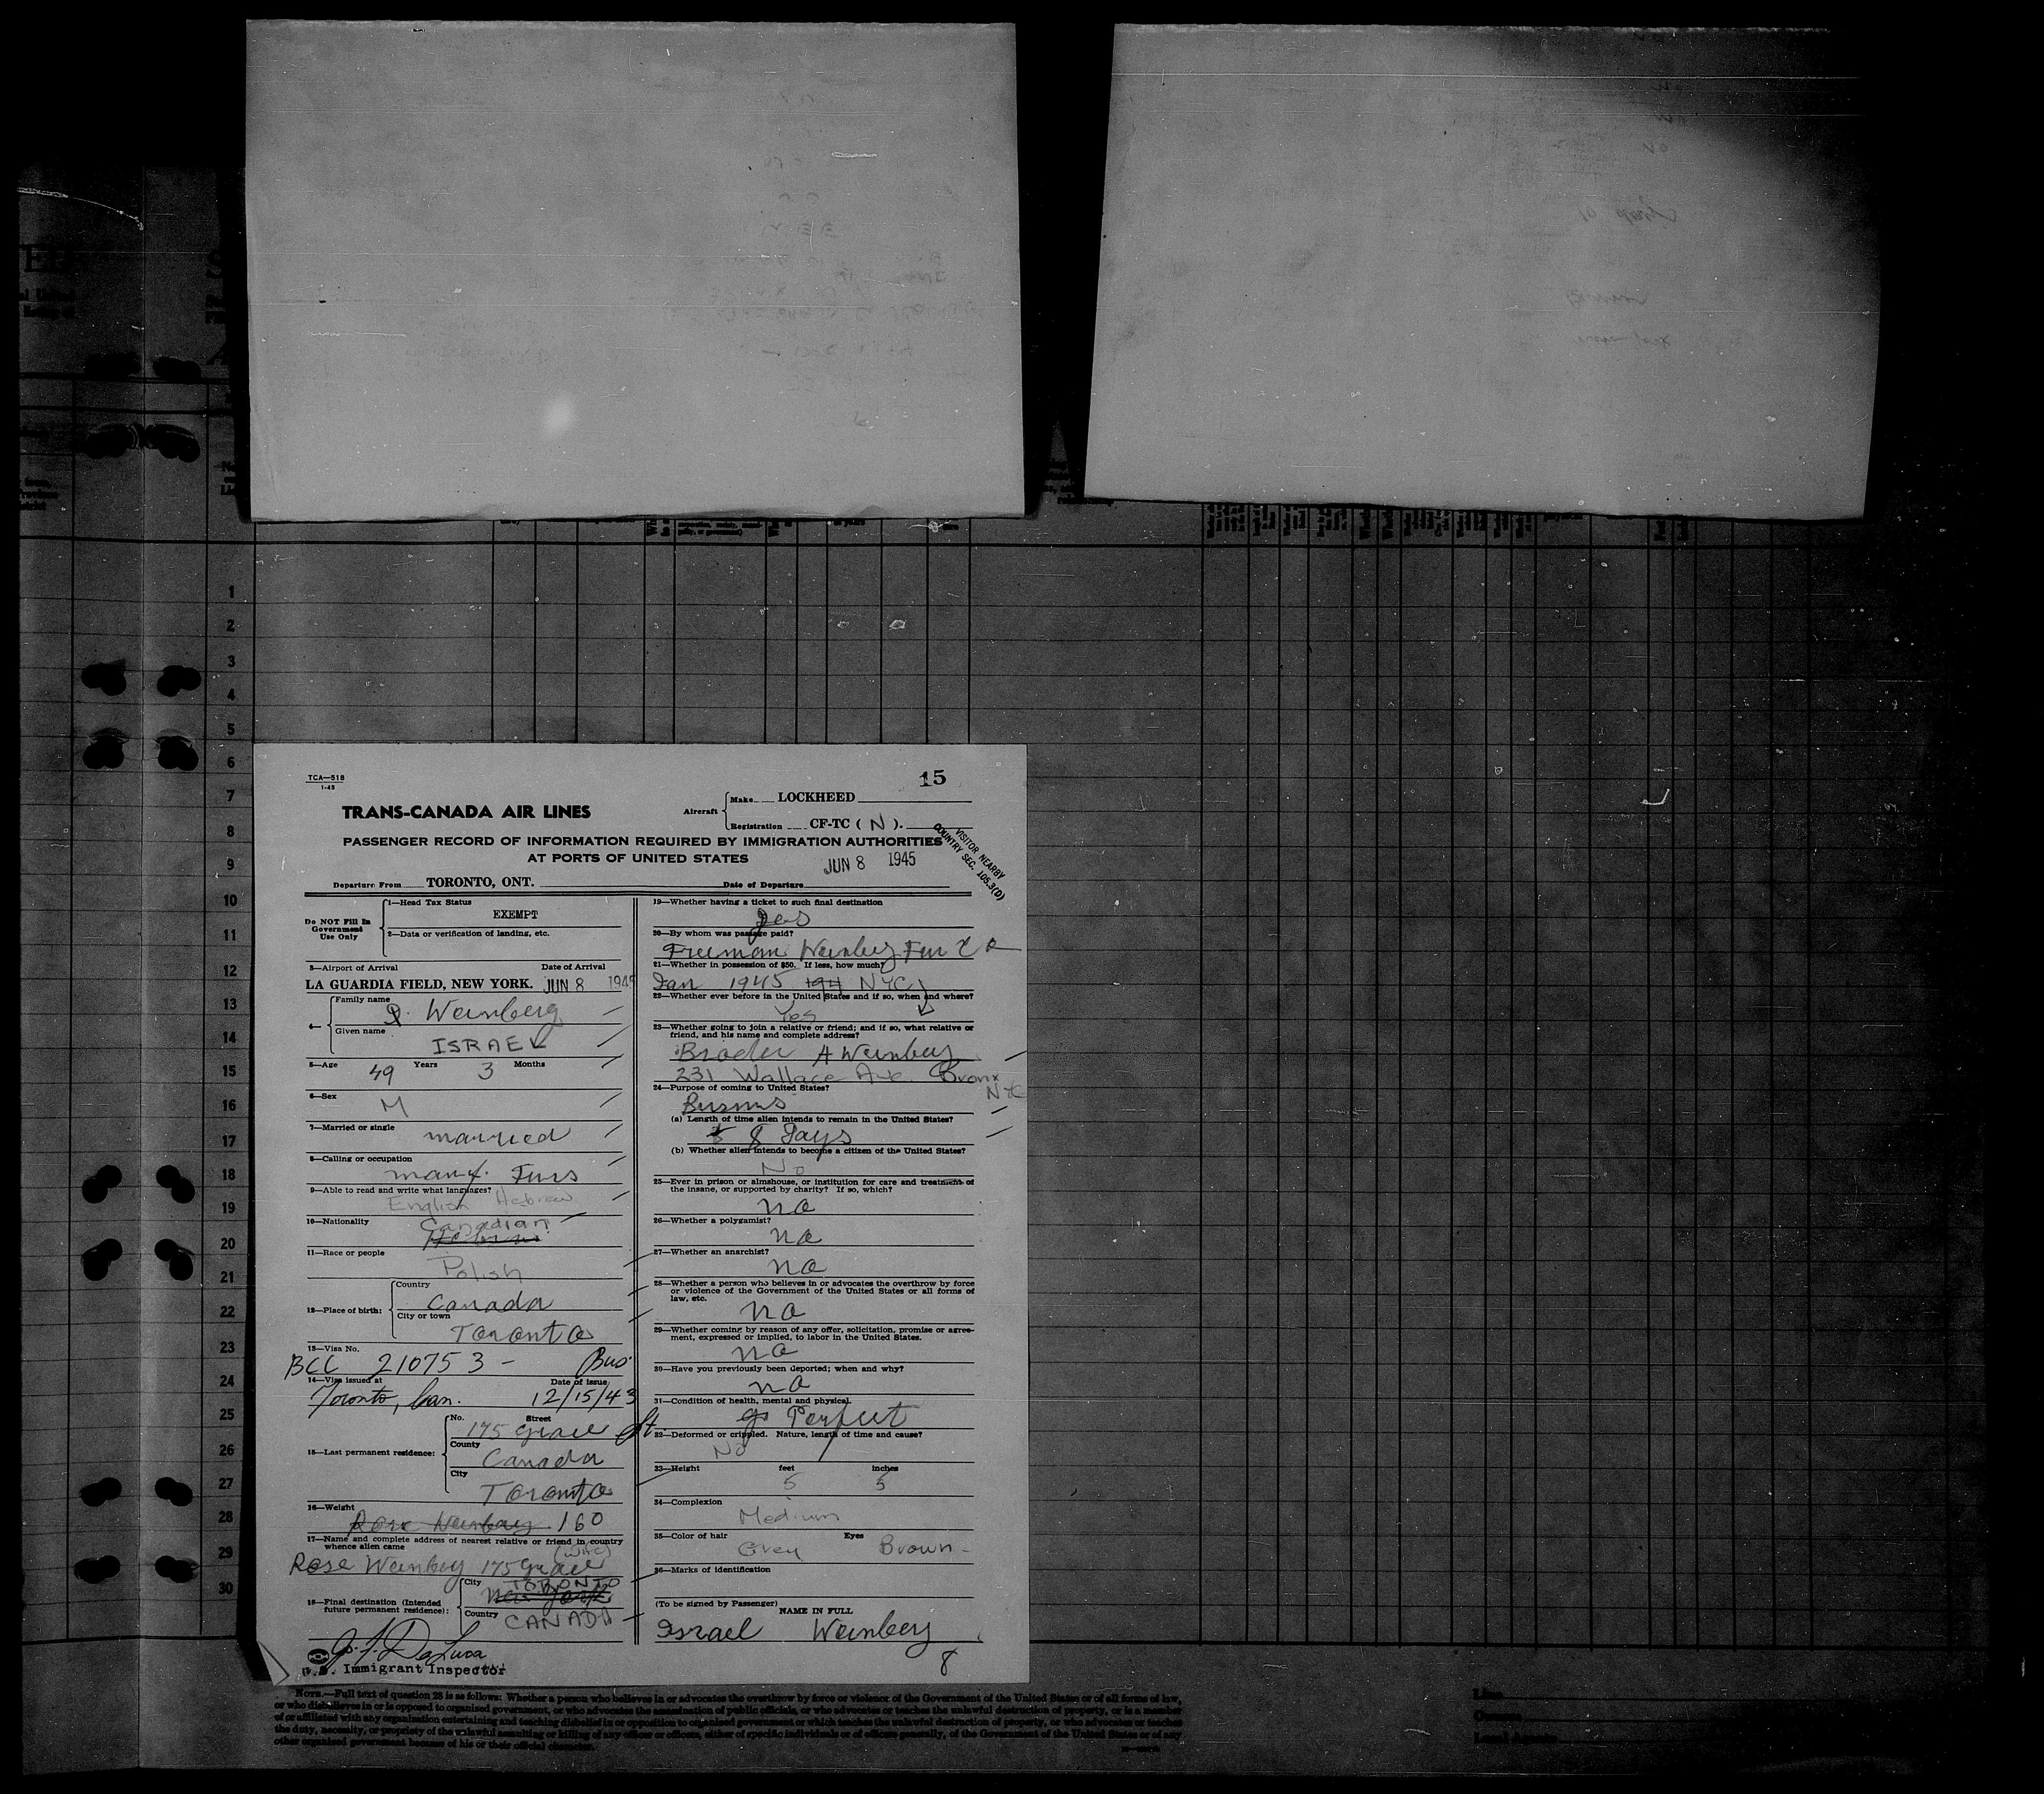 TCA—518
1-45
15
TRANS-CANADA AIR LINES
Aircraft
Make LOCKHEED
Registration CF-TC ( N ).
PASSENGER RECORD OF INFORMATION REQUIRED BY IMMIGRATION AUTHORITIES
AT PORTS OF UNITED STATES
JUN 8 1945
VISITOR NEARBY
COUNTRY SEC. 105.3(D)
Departure From TORONTO, ONT. Date of Departure
Do NOT Fill In
Government
Use Only
1—Head Tax Status
EXEMPT
2—Data or verification of landing, etc.
3—Airport of Arrival Date of Arrival
LA GUARDIA FIELD, NEW YORK. JUN 8 1945
4—
Family name
Weinberg
Given name
ISRAEL
5—Age 49 Years 3 Months
6—Sex
M
7—Married or single
married
8—Calling or occupation
manf. Furs
9—Able to read and write what languages?
English Hebrew
10—Nationality
Canadian
11—Race or people
Polish
12—Place of birth:
Country
Canada
City or town
Toronto
13—Visa No.
BCC 210753 - Bus.
14—Visa issued at Date of issue
Toronto, Can. 12/15/43
15—Last permanent residence:
No. Street
175 Grace St
County
Canada
City
Toronto
16—Weight
Rose Weinberg 160
17—Name and complete address of nearest relative or friend in country
whence alien came
(Wife)
Rose Weinberg 175 Grace
18—Final destination (Intended
future permanent residence):
City TORONTO
New York
Country CANADA
U.S. Immigrant Inspector
19—Whether having a ticket to such final destination
yes
20—By whom was passage paid?
Freeman Weinberg Fur Co
21—Whether in possession of $50. If less, how much?
Jan 1945 194 NYC
22—Whether ever before in the United States and if so, when and where?
Yes
23—Whether going to join a relative or friend; and if so, what relative or
friend, and his name and complete address?
Broder A Weinberg
231 Wallace Ave. Bronx
NYC
24—Purpose of coming to United States?
(a) Length of time alien intends to remain in the United States?
8 Days
(b) Whether alien intends to become a citizen of the United States?
No
25—Ever in prison or almshouse, or institution for care and treatment of
the insane, or supported by charity? If so, which?
no
26—Whether a polygamist?
no
27—Whether an anarchist?
no
28—Whether a person who believes in or advocates the overthrow by force
or violence of the Government of the United States or all forms of
law, etc.
no
29—Whether coming by reason of any offer, solicitation, promise or agree-
ment, expressed or implied, to labor in the United States.
no
30—Have you previously been deported; when and why?
no
31—Condition of health, mental and physical.
Perfect
32—Deformed or crippled. Nature, length of time and cause?
No
33—Height feet inches
5 5
34—Complexion
Medium
35—Color of hair Eyes
Grey Brown
36—Marks of identification
(To be signed by Passenger)
NAME IN FULL
Israel Weinberg
8
1
2
3
4
5
6
7
8
9
10
11
12
13
14
15
16
17
18
19
20
21
22
23
24
25
26
27
28
29
30
NOTE.—Full text of question 28 is as follows: Whether a person who believes in or advocates the overthrow by force or violence of the Government of the United States or of all forms of law,
or who disbelieves in or is opposed to organized government, or who advocates the assassination of public officials, or who advocates or teaches the unlawful destruction of property, or is a member
of or affiliated with any organization entertaining and teaching disbelief in or opposition to organized government or which teaches the unlawful destruction of property, or who advocates or teaches
the duty, necessity, or propriety of the unlawful assaulting or killing of any officer or officers, either of specific individuals or of officers generally, of the Government of the United States or of any
other organized government because of his or their official character.
Line
Owners
Local Agents